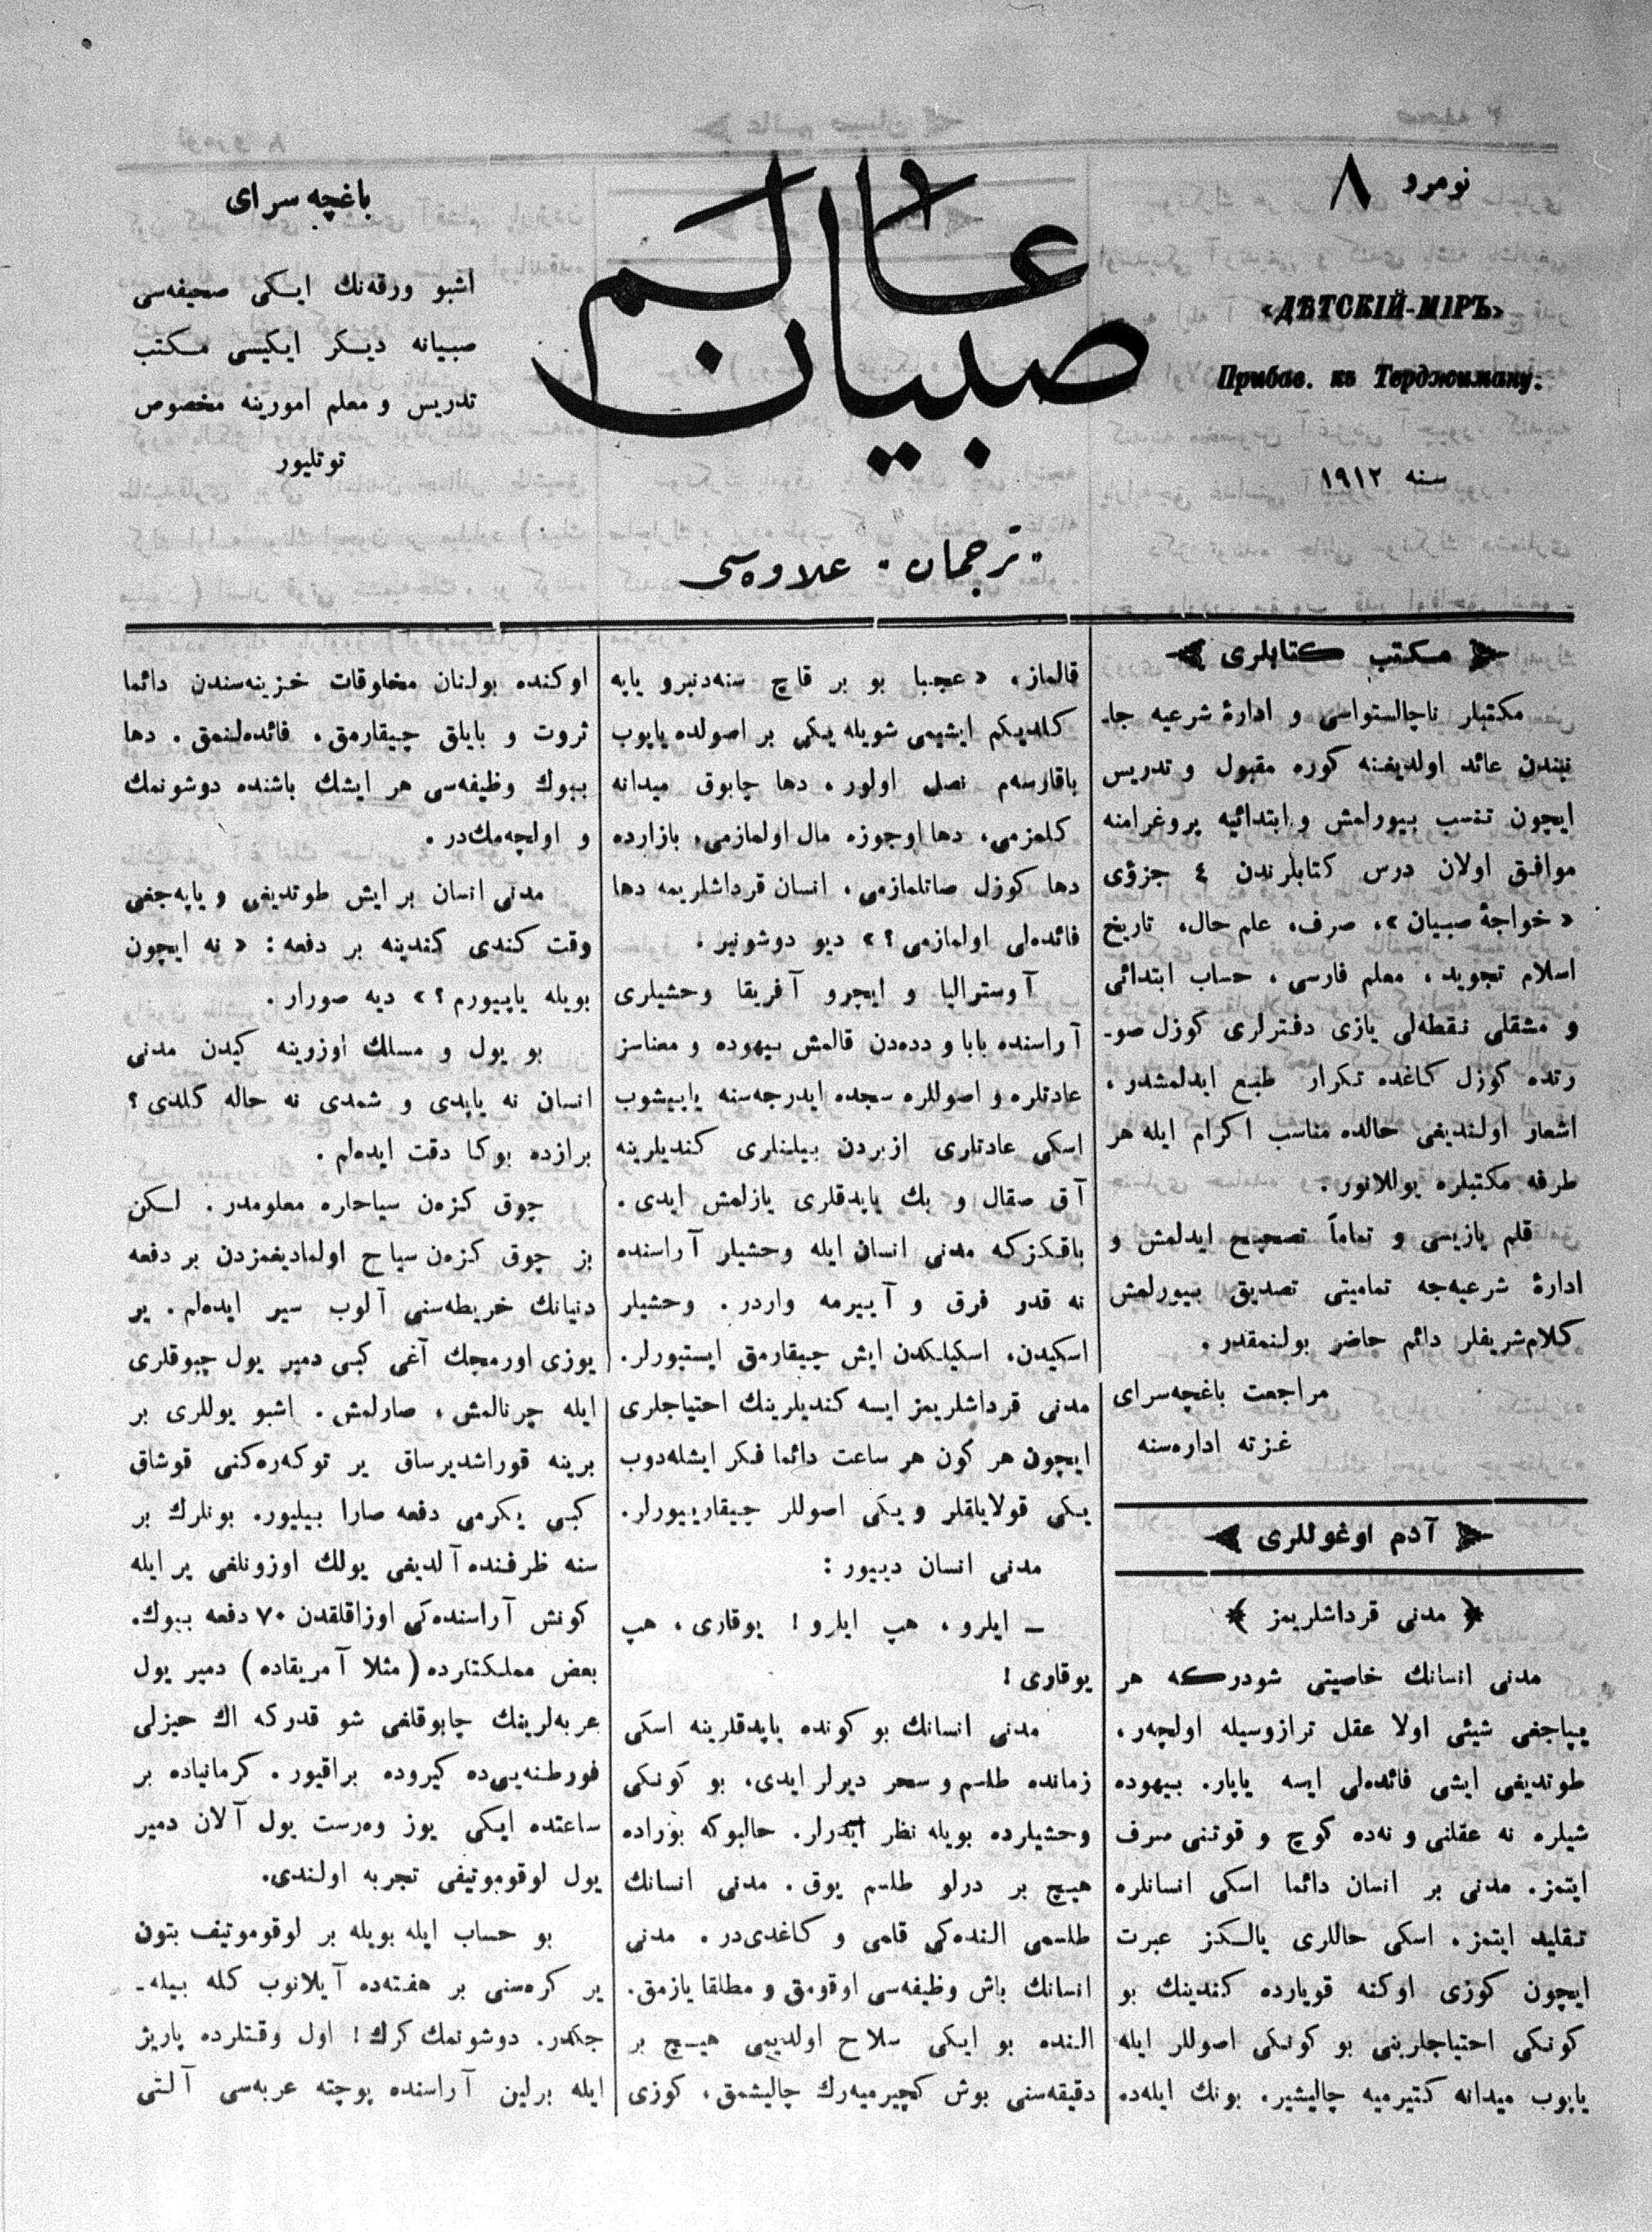 نومرو ٨
«ДѢТСКІЙ-МІРЪ»
Прибав. къ Терджиману.
سنه ١٩١٢
عالم
صبيان
„ترجمان“ علاوه‌سى
باغچه سراى
اشبو ورقه‌نك ايكى صحيفه‌سى
صبيانه ديكر ايكيسى مكتب
تدريس و معلم امورينه مخصوص
توتليور
مكتب كتابلرى
مكتبلر ناچالستواسى و ادارۀ شرعيه جا-
نبندن عائد اولديغنه كوره مقبول و تدريس
ايچون تنسب بيورلمش و ابتدائيه پروغرامنه
موافق اولان درس كتابلرندن ٤ جزؤى
«خواجۀ صبيان»، صرف، علم حال، تاريخ
اسلام تجويد، معلم فارسى، حساب ابتدائى
و مشقلى نقطه‌لى يازى دفترلرى كوزل صو-
رتده كوزل كاغده تكرار طبع ايدلمشدر،
اشعار اولنديغى حالده مناسب اكرام ايله هر
طرفه مكتبلره يوللانور.
قلم يازيسى و تماماً تصحيح ايدلمش و
ادارۀ شرعيه‌جه تماميتى تصديق بيورلمش
كلام‌شريفلر دائم حاضر بولنمقدر.
مراجعت باغچه‌سراى
غزته اداره‌سنه
آدم اوغوللرى
مدنى قرداشلريمز
مدنى انسانك خاصيتى شودركه هر
يپاجغى شيئى اولا عقل ترازوسيله اولچه‌ر،
طوتديغى ايشى فائده‌لى ايسه ياپار. بيهوده
شيلره نه عقلنى و نه‌ده كوچ و قوتنى صرف
ايتمز. مدنى بر انسان دائما اسكى انسانلره
تقليد ايتمز. اسكى حاللرى يالكز عبرت
ايچون كوزى اوكنه قويارده كندينك بو
كونكى احتياجلرينى بو كونكى اصوللر ايله
ياپوب ميدانه كتيرميه چاليشير. بونك ايله‌ده
قالماز، «عجبا بو بر قاچ سنه‌دنبرو ياپه
كلديكم ايشيمى شويله يكى بر اصولده ياپوب
باقارسه‌م نصل اولور، دها چابوق ميدانه
كلمزمى، دها اوجوزه مال اولمازمى، بازارده
دها كوزل صاتلمازمى، انسان قرداشلريمه دها
فائده‌لى اولمازمى؟» ديو دوشونير.
آوستراليا و ايچرو آفريقا وحشيلرى
آراسنده بابا و دده‌دن قالمش بيهوده و معناسز
عادتلره و اصوللره سجده ايدرجه‌سنه ياپيشوب
اسكى عادتلرى ازبردن بيلنلرى كنديلرينه
آق صقال و بك ياپدقلرى يازلمش ايدى.
باقكزكه مدنى انسان ايله وحشيلر آراسنده
نه قدر فرق و آييرمه واردر. وحشيلر
اسكيدن، اسكيلكدن ايش چيقارمق ايستيورلر.
مدنى قرداشلريمز ايسه كنديلرينك احتياجلرى
ايچون هر كون هر ساعت دائما فكر ايشله‌دوب
يكى قولايلقلر و يكى اصوللر چيقارييورلر.
مدنى انسان دييور:
— ايلرو، هپ ايلرو! يوقارى، هپ
يوقارى!
مدنى انسانك بو كونده ياپدقلرينه اسكى
زمانده طلسم و سحر ديرلر ايدى، بو كونكى
وحشيلرده بويله نظر ايدرلر. حالبوكه بوراده
هيچ بر درلو طلسم يوق. مدنى انسانك
طلسمى النده‌كى قلمى و كاغدى‌در. مدنى
انسانك باش وظيفه‌سى اوقومق و مطلقا يازمق.
النده بو ايكى سلاح اولديمى هيچ بر
دقيقه‌سنى بوش كچيرميه‌رك چاليشمق، كوزى
اوكنده بولنان مخلوقات خزينه‌سندن دائما
ثروت و بايلق چيقارمق، فائده‌لنمق. دها
بيوك وظيفه‌سى هر ايشك باشنده دوشونمك
و اولچه‌مك‌در.
مدنى انسان بر ايش طوتديغى و ياپه‌جغى
وقت كندى كندينه بر دفعه: «نه ايچون
بويله ياپيورم؟» ديه صورار.
بو يول و مسلك اوزوينه كيدن مدنى
انسان نه ياپدى و شمدى نه حاله كلدى؟
برازده بوكا دقت ايده‌لم.
چوق كزه‌ن سياحاره معلومدر. لكن
بز چوق كزه‌ن سياح اولماديغمزدن بر دفعه
دنيانك خريطه‌سنى آلوب سير ايده‌لم. ير
يوزى اورمجك آغى كبى دمير يول چبوقلرى
ايله چرنالمش، صارلمش. اشبو يوللرى بر
برينه قوراشديرساق ير توكه‌ره‌كنى قوشاق
كبى يكرمى دفعه صارا بيليور. بونلرك بر
سنه ظرفنده آلديغى يولك اوزونلغى ير ايله
كونش آراسنده‌كى اوزاقلقدن ٧٠ دفعه بيوك.
بعض مملكتلرده (مثلا آمريقاده) دمير يول
عربه‌لرينك چابوقلغى شو قدركه اك حيزلى
فورطنه‌يى‌ده كيروده براقيور. كرمانياده بر
ساعتده ايكى يوز وه‌رست يول آلان دمير
يول لوقوموتيفى تجربه اولندى.
بو حساب ايله بويله بر لوقوموتيف بتون
ير كره‌سنى بر هفته‌ده آيلانوب كله بيله-
جكدر. دوشونمك كرك! اول وقتلرده پاريژ
ايله برلين آراسنده پوچته عربه‌سى آلتى